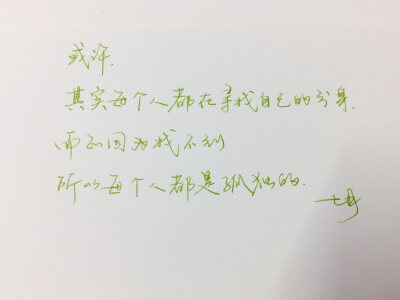 或许.
其实每个人都在寻找自己的分身.
而正因为找不到
所以每个人都是孤独的.